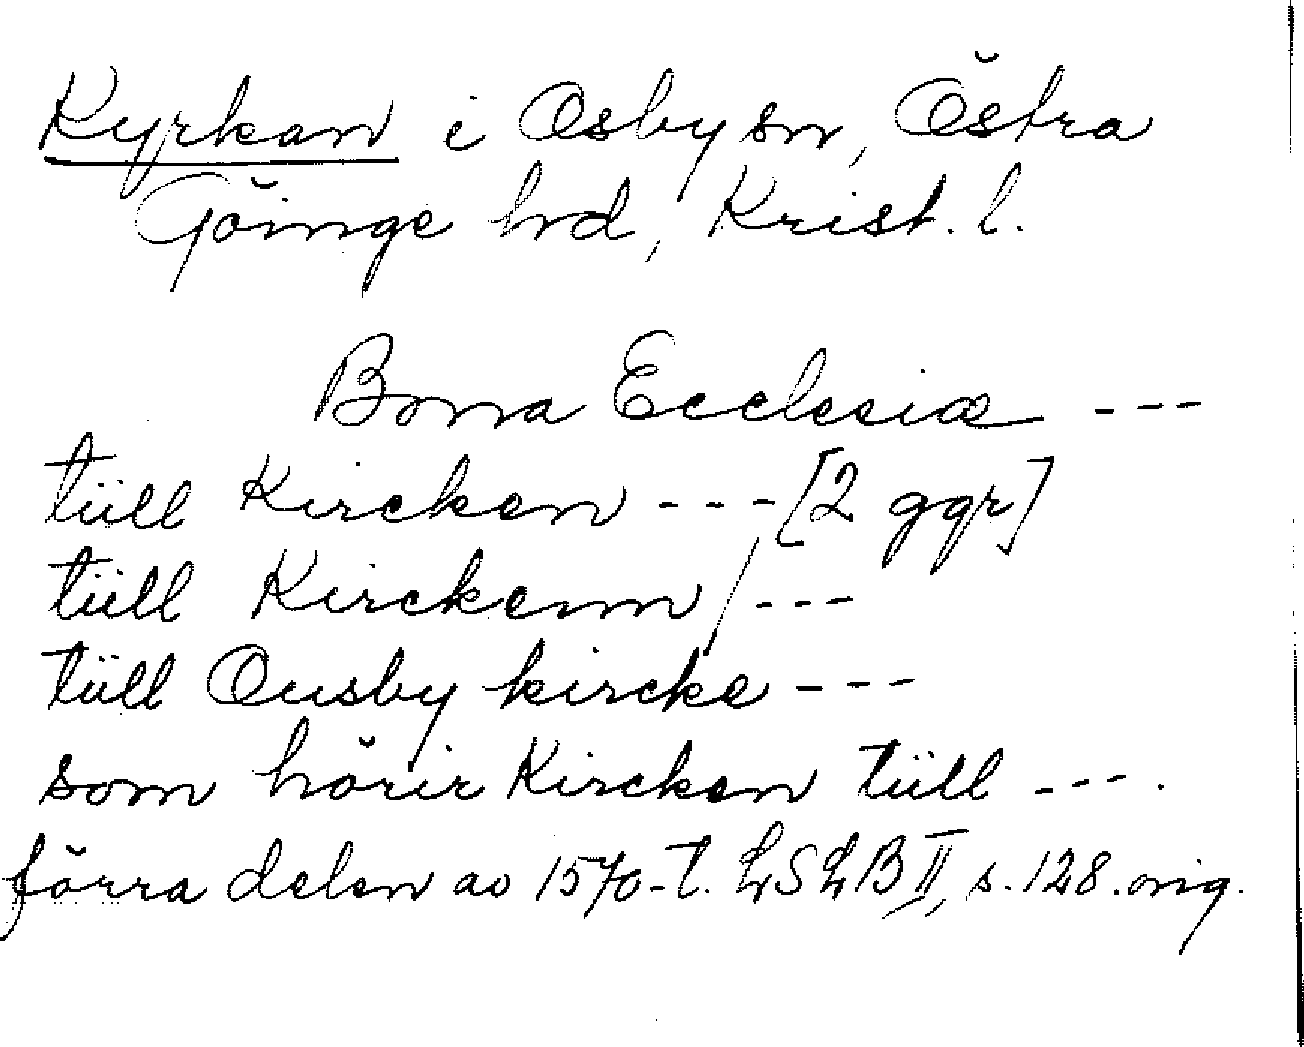 Kyrkan i Osby sn, Östra
Göinge hrd, Krist. l.
Bona Ecclesiæ ---
tüll Kircken --- [2 ggr]
tüll Kirckenn / ---
tüll Ousby kircke ---
som hörir Kircken tüll ---.
förra delen av 1570-t. LSLB II, s. 128. orig.